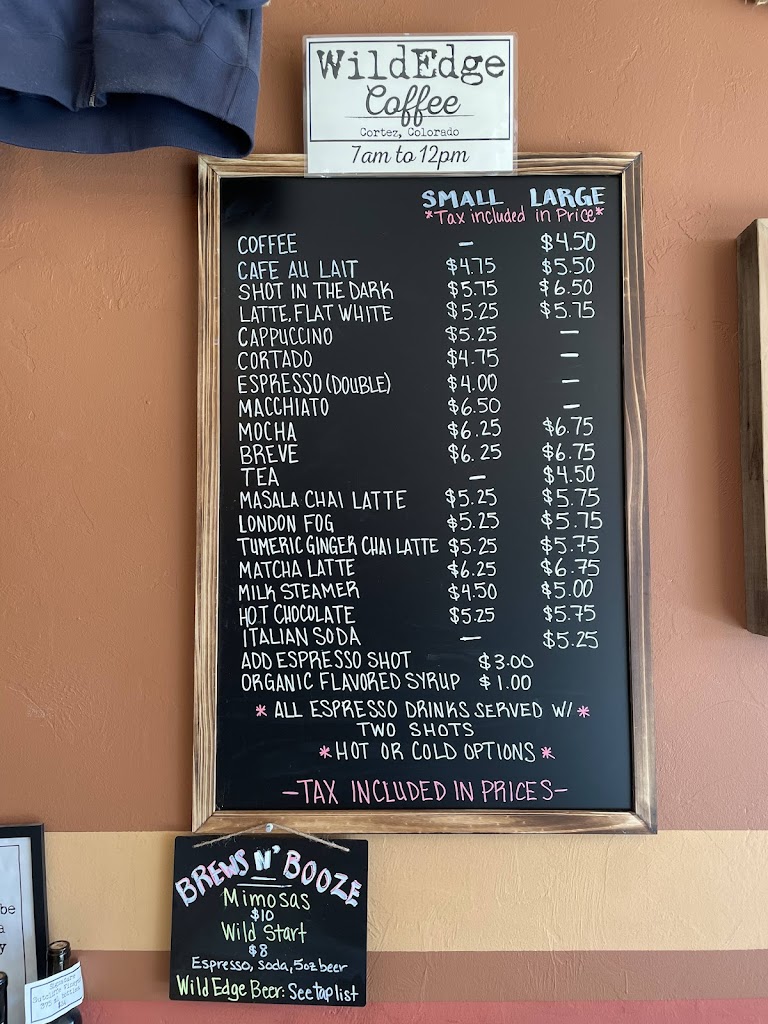 WildEdge
Coffee
Cortez, Colorado
7am to 12pm
SMALL LARGE
*Tax included in Price*
COFFEE — $4.50
CAFE AU LAIT $4.75 $5.50
SHOT IN THE DARK $5.75 $6.50
LATTE, FLAT WHITE $5.25 $5.75
CAPPUCCINO $5.25 —
CORTADO $4.75 —
ESPRESSO (DOUBLE) $4.00 —
MACCHIATO $6.50 —
MOCHA $6.25 $6.75
BREVE $6.25 $6.75
TEA — $4.50
MASALA CHAI LATTE $5.25 $5.75
LONDON FOG $5.25 $5.75
TUMERIC GINGER CHAI LATTE $5.25 $5.75
MATCHA LATTE $6.25 $6.75
MILK STEAMER $4.50 $5.00
HOT CHOCOLATE $5.25 $5.75
ITALIAN SODA — $5.25
ADD ESPRESSO SHOT $3.00
ORGANIC FLAVORED SYRUP $1.00
* ALL ESPRESSO DRINKS SERVED W/ *
TWO SHOTS
* HOT OR COLD OPTIONS *
—TAX INCLUDED IN PRICES—
BREWS N' BOOZE
Mimosas
$10
Wild Start
$8
Espresso, soda, 5oz beer
WildEdge Beer: See tap list
be
a
y